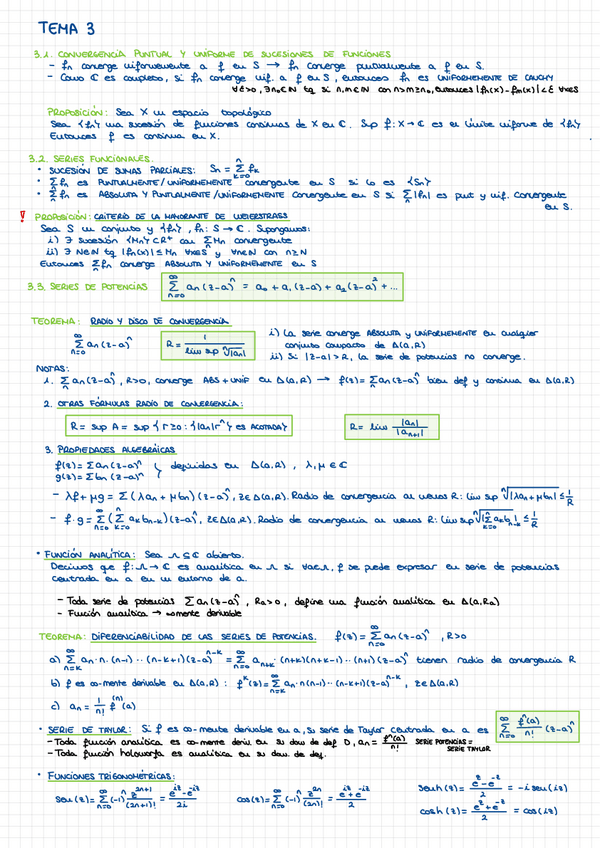 TEMA 3
3.1. CONVERGENCIA PUNTUAL Y UNIFORME DE SUCESIONES DE FUNCIONES
- fn converge uniformemente a f en S → fn converge puntualmente a f en S.
- Como ℂ es completo, si fn converge unif. a f en S, entonces fn es UNIFORMEMENTE DE CAUCHY
∀ε>0, ∃n₀∈ℕ tq si n,m∈ℕ con n>m≥n₀, entonces |fn(x)-fm(x)|<ε ∀x∈S
PROPOSICIÓN: Sea X un espacio topológico
Sea {fn} una sucesión de funciones continuas de X en ℂ. Sup f: X→ℂ es el límite uniforme de {fn}
Entonces f es continua en X.
3.2. SERIES FUNCIONALES.
• SUCESIÓN DE SUMAS PARCIALES: Sn = Σ_{k=0}^{n} fk
• Σ fn es PUNTUALMENTE/UNIFORMEMENTE convergente en S si lo es {Sn}
• Σ fn es ABSOLUTA Y PUNTUALMENTE/UNIFORMEMENTE Convergente en S si Σ|fn| es punt y unif. Convergente
en S.
! PROPOSICIÓN: CRITERIO DE LA MAYORANTE DE WEIERSTRASS
Sea S un conjunto y {fn}, fn: S→ℂ. Supongamos:
i) ∃ sucesión {Mn}⊂ℝ⁺ con ΣMn convergente
ii) ∃ N∈ℕ tq |fn(x)|≤Mn ∀x∈S y ∀n∈ℕ con n≥N
Entonces Σfn converge ABSOLUTA Y UNIFORMEMENTE en S
3.3. SERIES DE POTENCIAS Σ_{n=0}^{∞} an(z-a)^n = a₀ + a₁(z-a) + a₂(z-a)² + ...
TEOREMA: RADIO Y DISCO DE CONVERGENCIA
Σ_{n=0}^{∞} an(z-a)^n R = 1/(lim sup ⁿ√|an|)
i) La serie converge ABSOLUTA y UNIFORMEMENTE en cualquier
conjunto compacto de Δ(a,R)
ii) Si |z-a|>R, la serie de potencias no converge.
NOTAS:
1. Σ an(z-a)^n, R>0, converge ABS+UNIF en Δ(a,R) → f(z)=Σan(z-a)^n bien def y continua en Δ(a,R)
2. OTRAS FÓRMULAS RADIO DE CONVERGENCIA:
R = sup A = sup {r≥0: {|an|r^n} es ACOTADA} R = lim |an|/|an+1|
3. PROPIEDADES ALGEBRAICAS
f(z)=Σan(z-a)^n
g(z)=Σbn(z-a)^n } definidas en Δ(a,R), λ,μ∈ℂ
- λf+μg = Σ(λan+μbn)(z-a)^n, z∈Δ(a,R). Radio de convergencia al menos R: lim sup ⁿ√|λan+μbn| ≤ 1/R
- f·g = Σ_{n=0}^{∞}(Σ_{k=0}^{n} ak bn-k)(z-a)^n, z∈Δ(a,R). Radio de convergencia al menos R: lim sup ⁿ√|Σ_{k=0}^{n} ak bn-k| ≤ 1/R
• FUNCIÓN ANALÍTICA: Sea Ω⊆ℂ abierto.
Decimos que f: Ω→ℂ es analítica en Ω si ∀a∈Ω, f se puede expresar en serie de potencias
centrada en a en un entorno de a.
- Toda serie de potencias Σan(z-a)^n, Ra>0, define una función analítica en Δ(a,Ra)
- Función analítica → ∞mente derivable
TEOREMA: DIFERENCIABILIDAD DE LAS SERIES DE POTENCIAS. f(z)=Σ_{n=0}^{∞} an(z-a)^n, R>0
a) Σ_{n=k}^{∞} an·n·(n-1)···(n-k+1)(z-a)^{n-k} = Σ_{n=0}^{∞} an+k·(n+k)(n+k-1)···(n+1)(z-a)^n tienen radio de convergencia R
b) f es ∞-mente derivable en Δ(a,R): f^k(z)=Σ_{n=k}^{∞} an·n(n-1)···(n-k+1)(z-a)^{n-k}, z∈Δ(a,R)
c) an = 1/n! f^(n)(a)
• SERIE DE TAYLOR: Si f es ∞-mente derivable en a, su serie de Taylor centrada en a es Σ_{n=0}^{∞} f^n(a)/n! (z-a)^n
- Toda función analítica es ∞-mente deriv en su dom de def D, an = f^n(a)/n! SERIE POTENCIAS =
SERIE TAYLOR
- Toda función holomorfa es analítica en su dom. de def.
• FUNCIONES TRIGONOMÉTRICAS:
sen(z)=Σ_{n=0}^{∞}(-1)^n z^{2n+1}/(2n+1)! = (e^{iz}-e^{-iz})/2i cos(z)=Σ_{n=0}^{∞}(-1)^n z^{2n}/(2n)! = (e^{iz}+e^{-iz})/2
senh(z) = (e^z-e^{-z})/2 = -i sen(iz)
cosh(z) = (e^z+e^{-z})/2 = cos(iz)